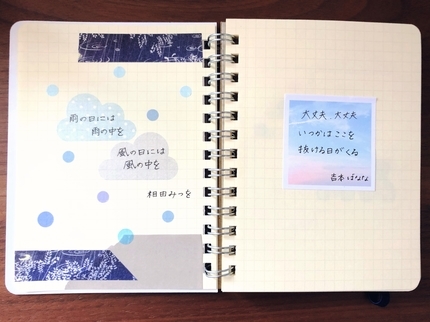 雨の日には
雨の中を
風の日には
風の中を
相田みつを
大丈夫 大丈夫
いつかはここを
抜ける日がくる
吉本ばなな